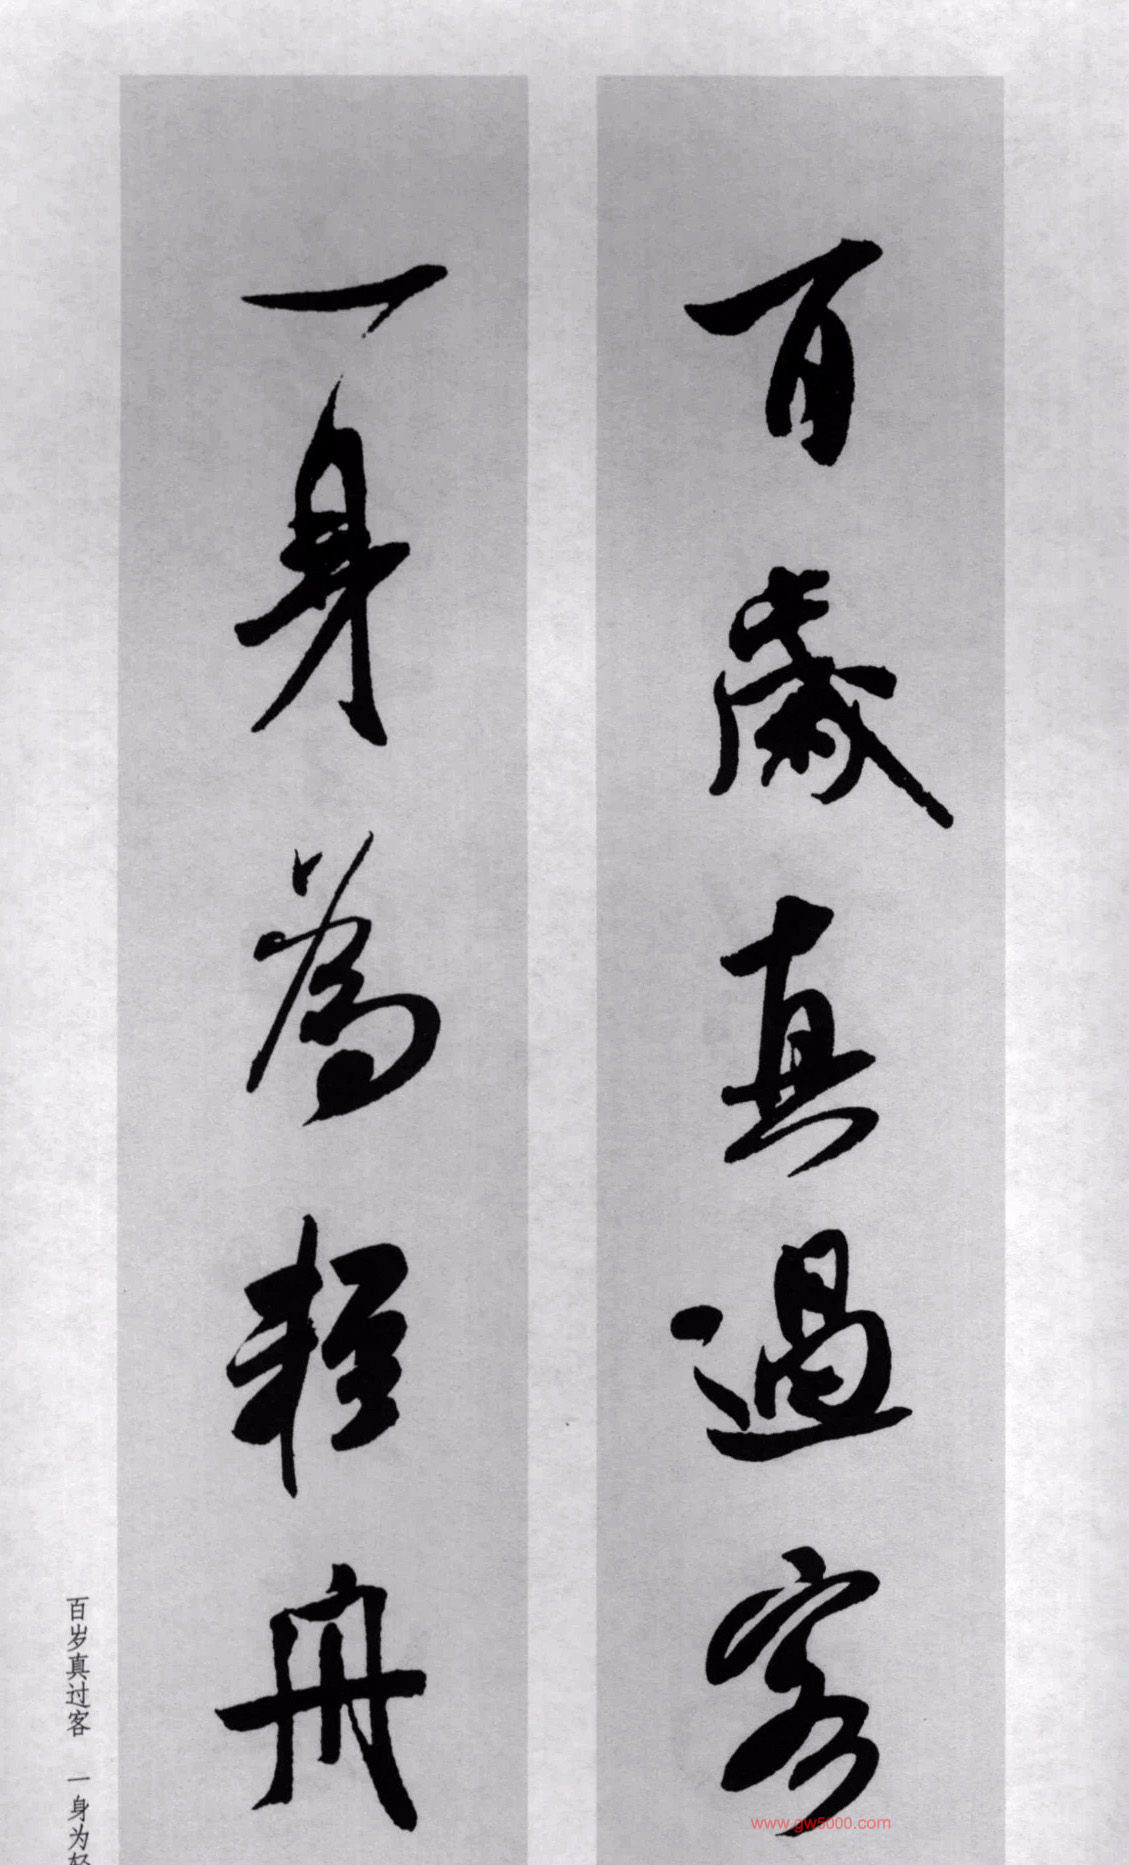 百歲真過客
一身為輕舟
百岁真过客 一身为轻
www.gw5000.com